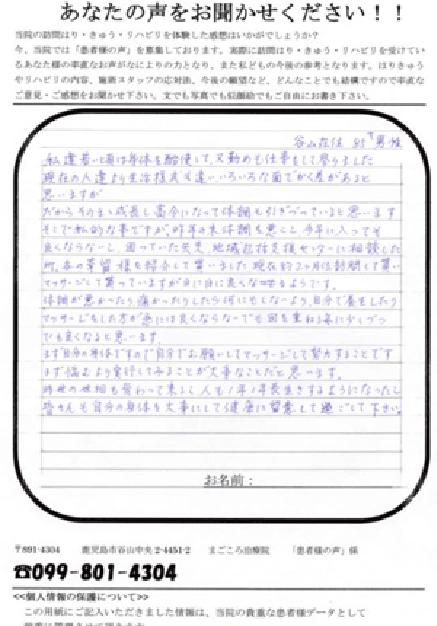 あなたの声をお聞かせください！！
当院の訪問はり・きゅう・リハビリを体験した感想はいかがでしょうか？
今、当院では「患者様の声」を募集しております。実際に訪問はり・きゅう・リハビリを受けてい
るあなた様の率直なお声がなにより力となり、また私どもの今後の参考となります。はりきゅう
やリハビリの内容、施術スタッフの応対法、今後の願望など、どんなことでも結構ですので率直な
ご意見・ご感想をお聞かせ下さい。文でも写真でも似顔絵でもご自由にお書き下さい。
谷山在住 男性
私達若い頃は身体を酷使して、又勤めも仕事をして参りました
現在の人達より生活様式も違いいろいろな面でかく差があると
思いますが
だからそのまま成長し高令になって体調も引きづっていると思います
そこで私的な事ですが、昨年の末体調を悪くし、今年に入っても
良くならないし、困っていた矢先、地域包括支援センターに相談した
所、 様を紹介して貰いました 現在約2ヶ月位訪問して貰い
マッサージして貰っていますが日に日に良くなるようです。
体調が悪かったり痛かったりしたら何にもしないより、自分で養をしたり
マッサージをした方が急には良くならないでも回を重ねる毎に少しづつ
でも良くなると思います。
まず自分の身体ですので自分でお願いしてマッサージして努力することです
まず悩むより実行してみることが大事なことだと思います。
昨今の世相も変わって来し、人も1年1年長生きするようになったし
皆さんも自分の身体を大事にして健康に留意して過ごして下さい。
お名前：
〒891-4304 鹿児島市谷山中央2-4451-2 まごころ治療院 「患者様の声」係
☎099-801-4304
<<個人情報の保護について>>
この用紙にご記入いただきました情報は、当院の貴重な患者様データとして